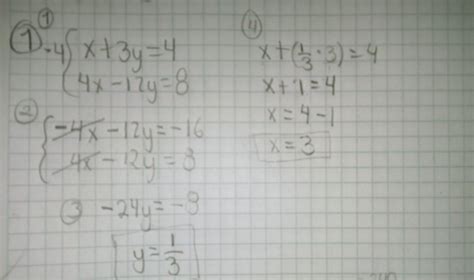 ① 
① -4 { x + 3y = 4
4x - 12y = 8
②
{ -4x - 12y = -16
4x - 12y = 8
③ -24y = -8
y = 1/3
④
x + (1/3 · 3) = 4
x + 1 = 4
x = 4 - 1
x = 3